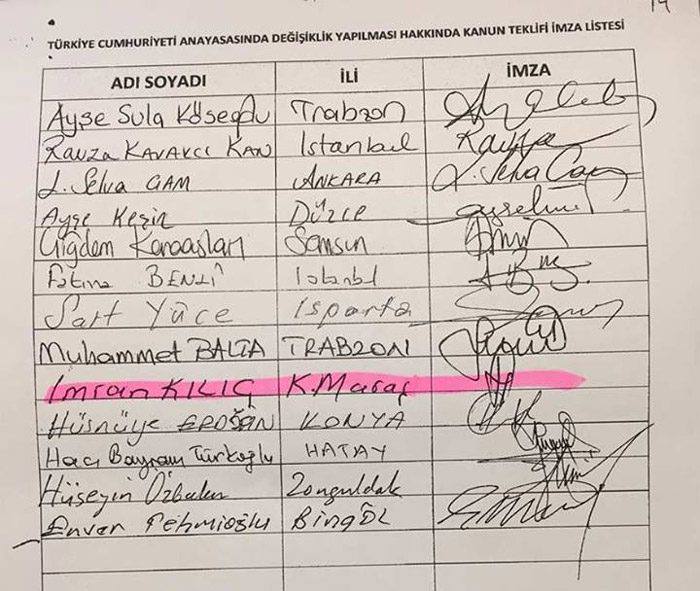 14
TÜRKİYE CUMHURİYETİ ANAYASASINDA DEĞİŞİKLİK YAPILMASI HAKKINDA KANUN TEKLİFİ İMZA LİSTESİ
ADI SOYADI İLİ İMZA
Ayşe Sula Köseoğlu Trabzon
Ravza KAVAKCI KAN İstanbul Ravza
L. Selva ÇAM ANKARA L. Selva Çam
Ayşe Keşir Düzce
Çiğdem Karaaslan Samsun
Fatma BENLİ İstanbl
Sait Yüce Isparta
Muhammet BALTA TRABZON
İmran KILIÇ K.Maraş
Hüsnüye ERDOĞAN KONYA
Hacı Bayram Türkoğlu HATAY
Hüseyin Özbakır Zonguldak
Enver Fehmioğlu BİNGÖL